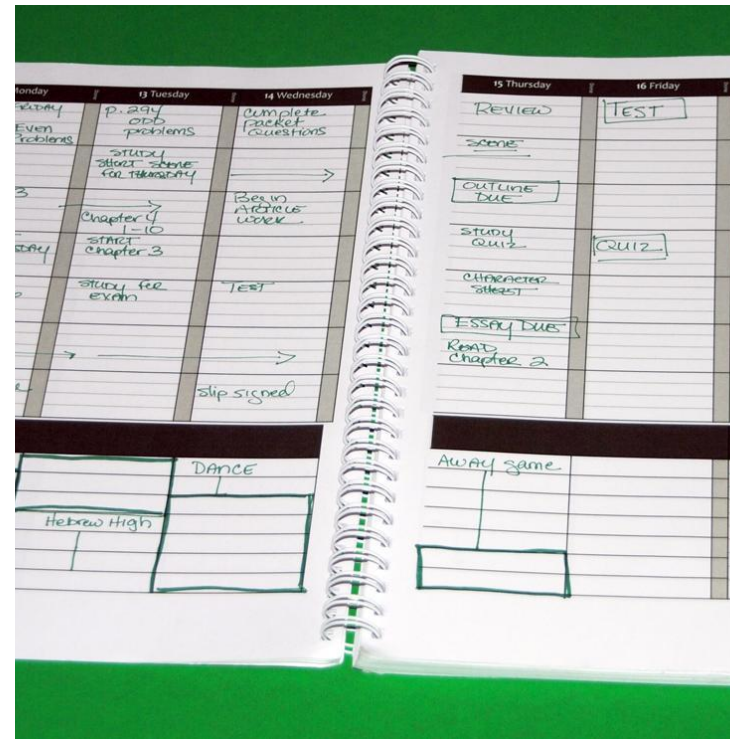 Monday
Even
Problems
3
13 Tuesday
p. 294
ODD
problems
STUDY
Start Scene
for THURSDAY
Chapter 4
1-10
START
Chapter 3
STUDY for
exam
Hebrew High
14 Wednesday
Complete
packet
Questions
Begin
ARTICLE
WORK
TEST
slip signed
DANCE
15 Thursday
REVIEW
SCENE
OUTLINE
DUE
STUDY
QUIZ
CHARACTER
ESSAY DUE
READ
Chapter 2
AWAY game
16 Friday
TEST
QUIZ